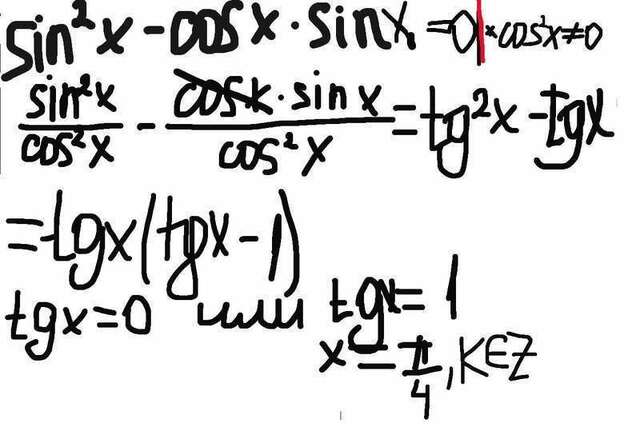 sin²x - cosx · sinx = 0 | × cos²x ≠ 0
sin²x/cos²x - cosx · sin x/cos²x = tg²x - tgx
= tgx(tgx - 1)
tgx = 0 или tgx = 1
x = π/4, K∈Z